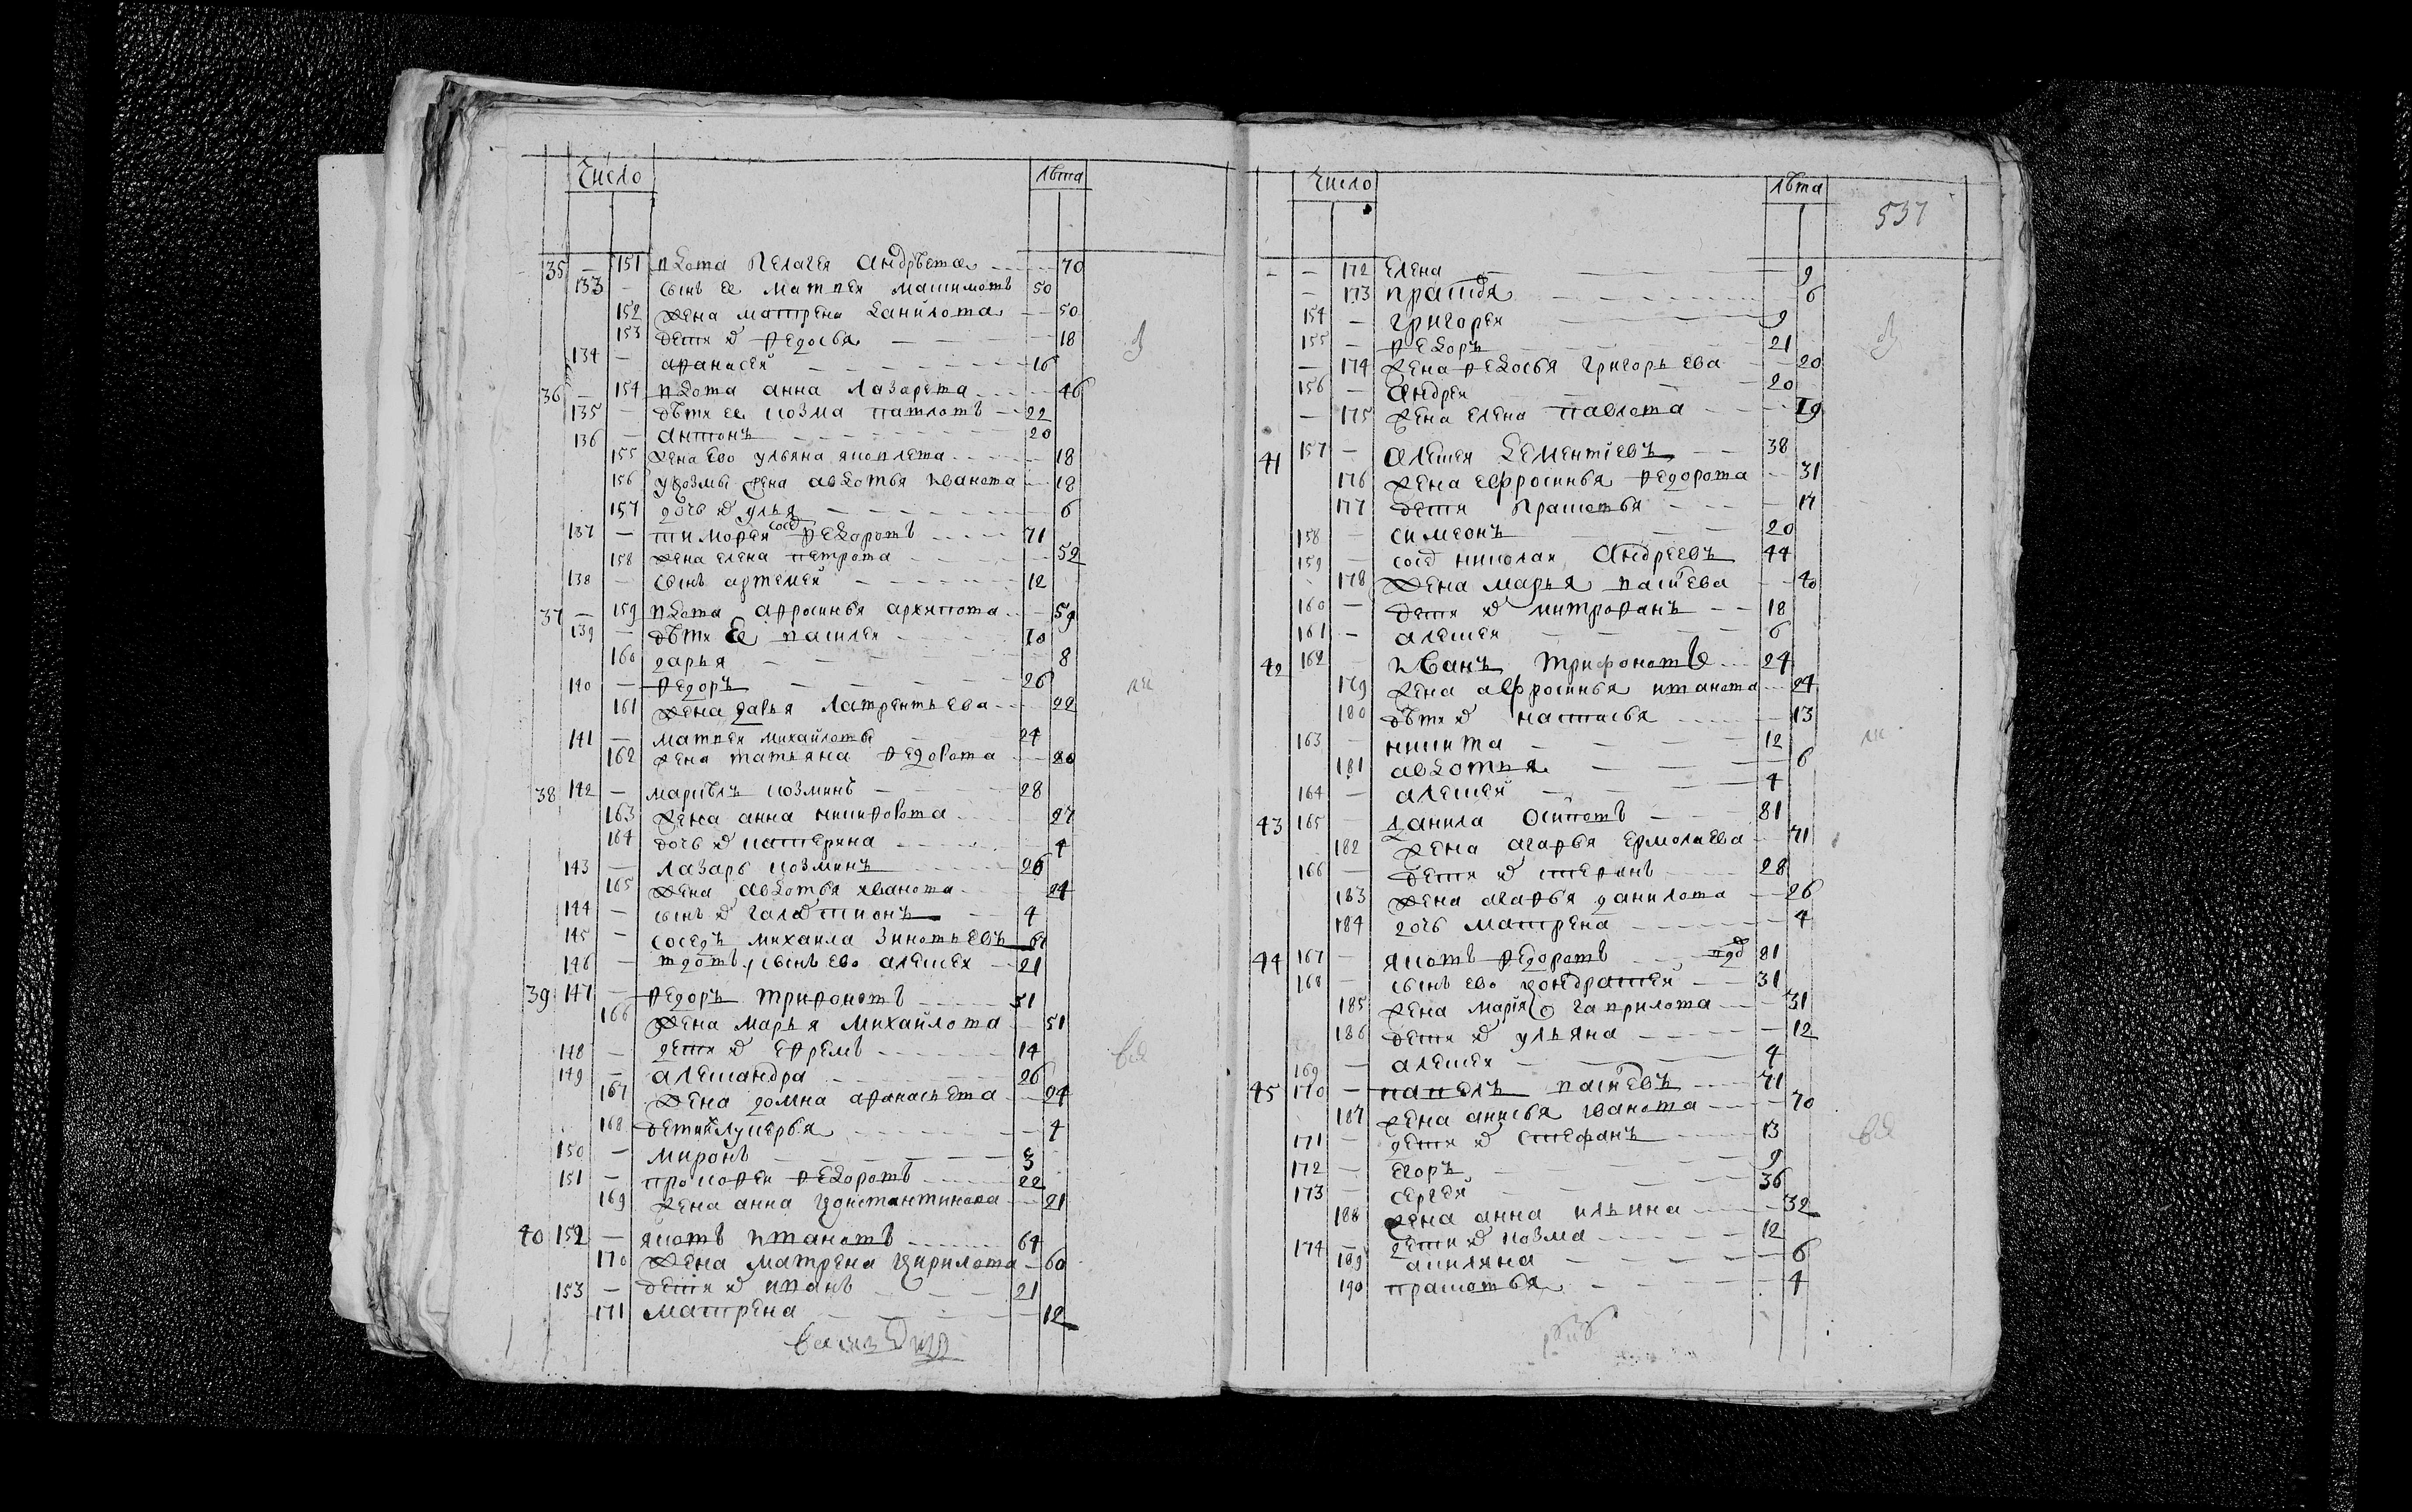 Число лѣта
35 — 151 вдова Пелагея Андрѣева 70
133 — сынъ ее Матвей Машимовъ 50
152 жена Матрена Данилова 50
153 дети их Федосья 18
134 — Афанасей 16
36 — 154 вдова Анна Лазарева 46
135 — дѣти ее Козма Павловъ 22
136 — Антонъ 20
155 жена ево Ульяна Яковлева 18
156 у Козмы жена Авдотья Иванова 18
157 дочь их Улья 6
137 — сосд Тимофей Федоровъ 71
158 жена Елена Петрова 52
138 — сынъ Артемей 12
37 — 159 вдова Афросинья Архипова 59
139 — дѣти ее Василей 10
160 Дарья 8
140 — Федоръ 26
161 жена Дарья Лаврентьева 22
141 — Матвей Михайловъ 24
162 жена Татьяна Федорова 20
38 142 — Маркѣлъ Козминъ 28
163 жена Анна Никифорова 27
164 дочь их Катерина 4
143 — Лазарь Козминъ 26
165 жена Авдотья Иванова 24
144 — сынъ их Галактионъ 4
145 — соседъ Михаила Зиновьевъ 61
146 — вдовъ, сынъ ево Алексей 21
39 147 — Федоръ Трифоновъ 51
166 жена Марья Михайлова 51
148 — дети их Ефремъ 14
149 — Александра 26
167 жена Домна Афанасьева 24
168 дети их Лукерья 4
150 — Миронъ 3
151 — Прокофей Федоровъ 22
169 жена Анна Константинова 21
40 152 — Яковъ Ивановъ 64
170 жена Матрена Кирилова 60
153 — дети их Иванъ 21
171 Матрена 12
Число лѣта
537
— — 172 Елена 9
— 173 Правдя 6
154 — Григорей 9
155 — Федоръ 21
— 174 жена Федосья Григорьева 20
156 — Андрей 20
— 175 жена Елена Павлова 19
41 157 — Алексей Дементіевъ 38
176 жена Евфросинья Федорова 31
177 дети Прасковья 17
158 — Симеонъ 20
159 — сосд Николай Андреевъ 44
178 жена Марья 40
160 — дети их Митрофанъ 18
161 — Алексей 6
42 162 — Иванъ Трифоновъ 24
179 жена Авфросинья Иванова 24
180 дѣти их Настасья 13
163 — Никита 12
181 Авдотья 6
164 — Алексей 4
43 165 — Данила Осиповъ 81
182 жена Агафья Ермолаева 71
166 — дети их Стефанъ 28
183 жена Агафья Данилова 26
184 дочь Матрена 4
44 167 — Яковъ Федоровъ вдв 81
168 — сынъ ево Кондратей 31
185 жена Марія Гаврилова 31
186 дети их Ульяна 12
169 — Алексей 4
45 170 — Павелъ 71
187 жена Анисья Иванова 70
171 — дети их Стефанъ 13
172 — Егоръ 9
173 — Сергей 36
188 жена Анна Ильина 32
174 — дети их Козма 12
189 Акилина 6
190 Прасковья 4